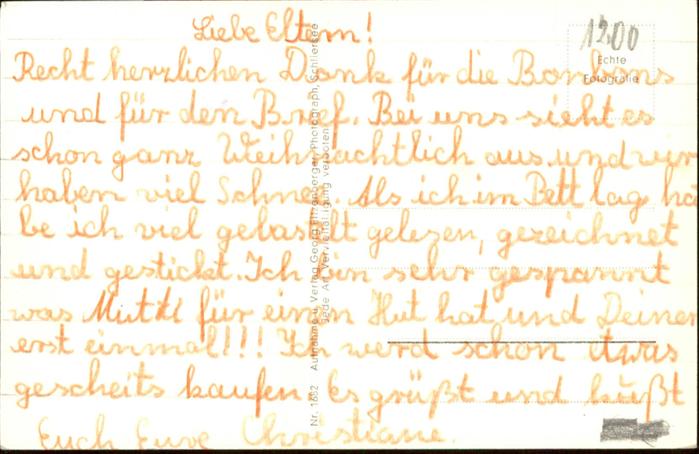 Liebe Eltern!
1200
Echte
Fotografie
Recht herzlichen Dank für die Bonbons
und für den Brief. Bei uns sieht es
schon ganz Weihnachtlich aus und wir
haben viel Schnee. Als ich im Bett lag ha
be ich viel gebastelt gelesen, gezeichnet
und gestickt. Ich bin sehr gespannt
was Mutti für einen Hut hat und Deiner
erst einmal!!! Ich werd schon etwas
gescheits kaufen. Es grüßt und küßt
Euch Eure Christiane.
Nr. 1662 Aufnahme u. Verlag Georg Photograph, Schliersee
Jede Art Vervielfältigung verboten